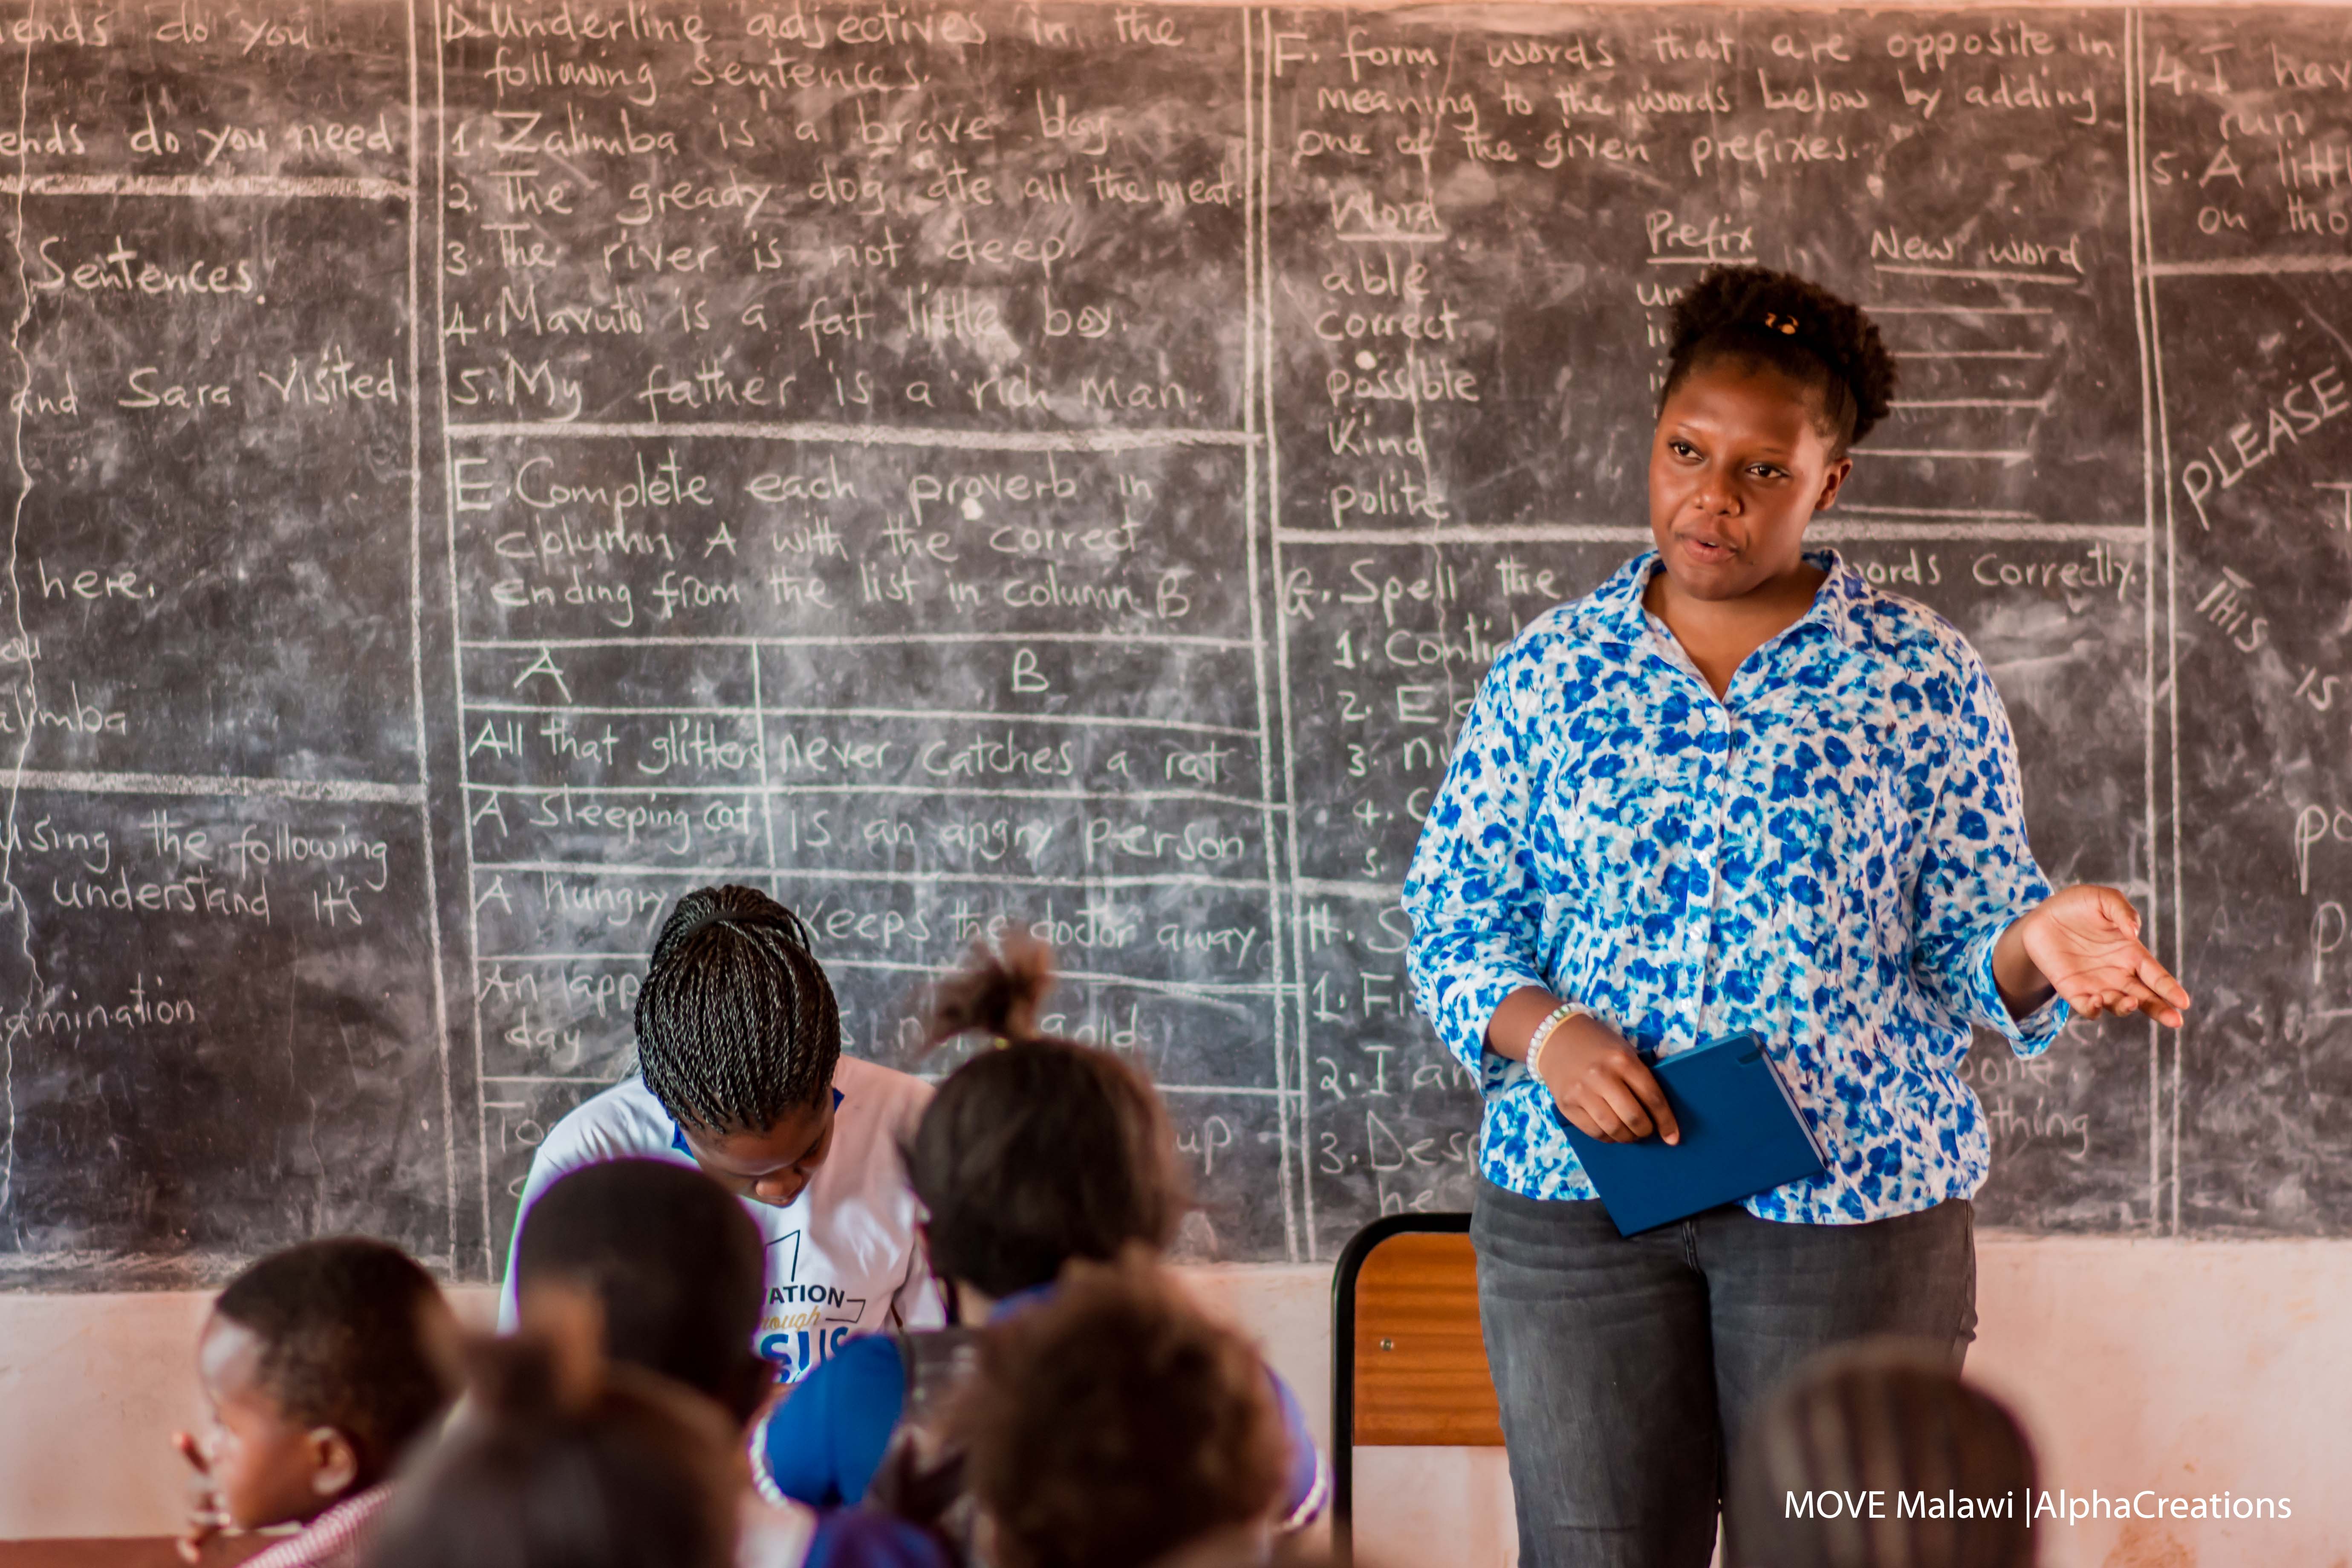 ends do you
ends do you need
Sentences.
and Sara visited
here.
alimba
using the following
understand it's
amination
D. Underline adjectives in the
following sentences.
1. Zalimba is a brave boy.
2. The gready dog ate all the meat.
3. The river is not deep.
4. Mavuto is a fat little boy.
5. My father is a rich man.
E. Complete each proverb in
column A with the correct
ending from the list in column B
A B
All that glitters never catches a rat
A sleeping cat is an angry person
A hungry keeps the doctor away
An app
day gold
Too up
F. form words that are opposite in
meaning to the words below by adding
one of the given prefixes.
Word Prefix New word
able un
correct i
possible i
Kind
polite
G. Spell the words correctly.
1. Conti
2. E
3. nu
4. C
5.
H. S
1. Fi
2. I am bone.
3. Desp thing
he
4. I hav
run
5. A littl
on tho
PLEASE
THIS IS
po
p
ATION
ough
SUS
MOVE Malawi |AlphaCreations